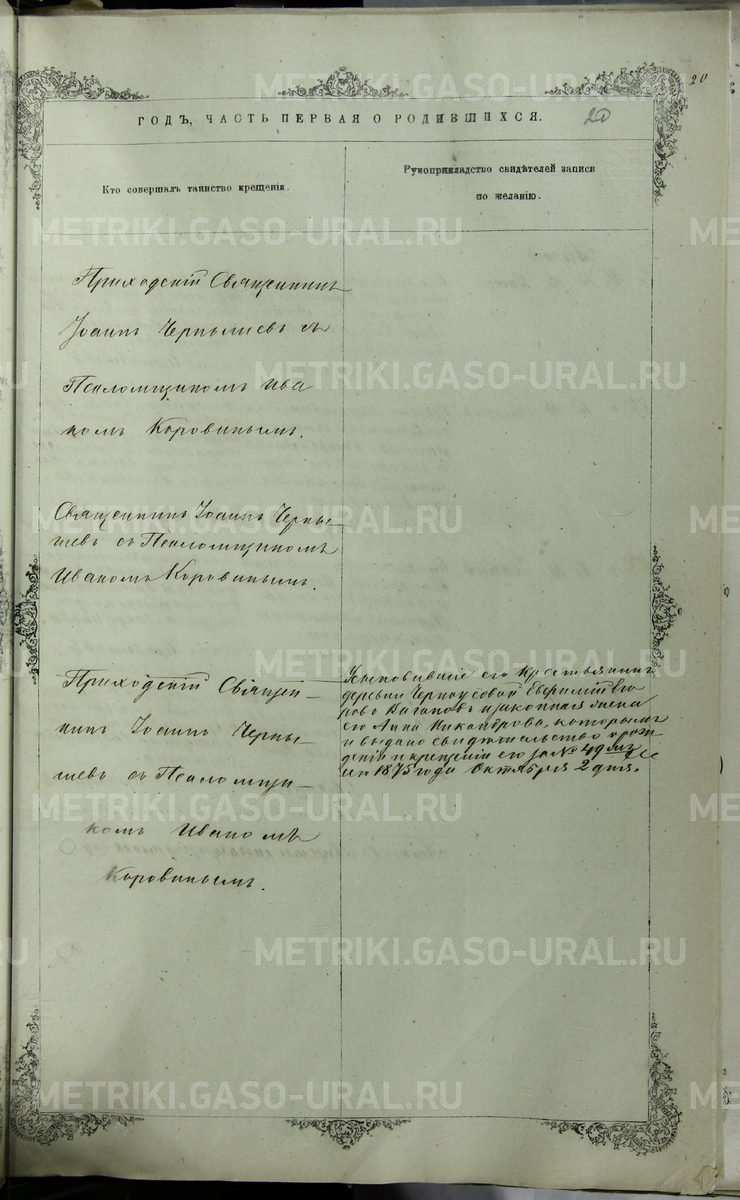 20
ГОДЪ, ЧАСТЬ ПЕРВАЯ О РОДИВШИХСЯ.
20
Кто совершалъ таинство крещенія.
Рукоприкладство свидѣтелей записи
по желанію.
Приходскій Священникъ
Іоаннъ Чернышевъ съ
Псаломщикомъ Ива
номъ Коровинымъ.
Священникъ Іоаннъ Черны-
шевъ съ Псаломщикомъ
Иваномъ Коровинымъ.
Приходскій Священ-
никъ Іоаннъ Черны-
шевъ съ Псаломщи-
комъ Иваномъ
Коровинымъ.
его Крестьянинъ
деревни Черноусовой
и законная жена
его Анна Никандрова, которымъ
и выдано свидѣтельство о рож
деніи и крещеніи его за №
1875 года Октября 2 дня.
METRIKI.GASO-URAL.RU